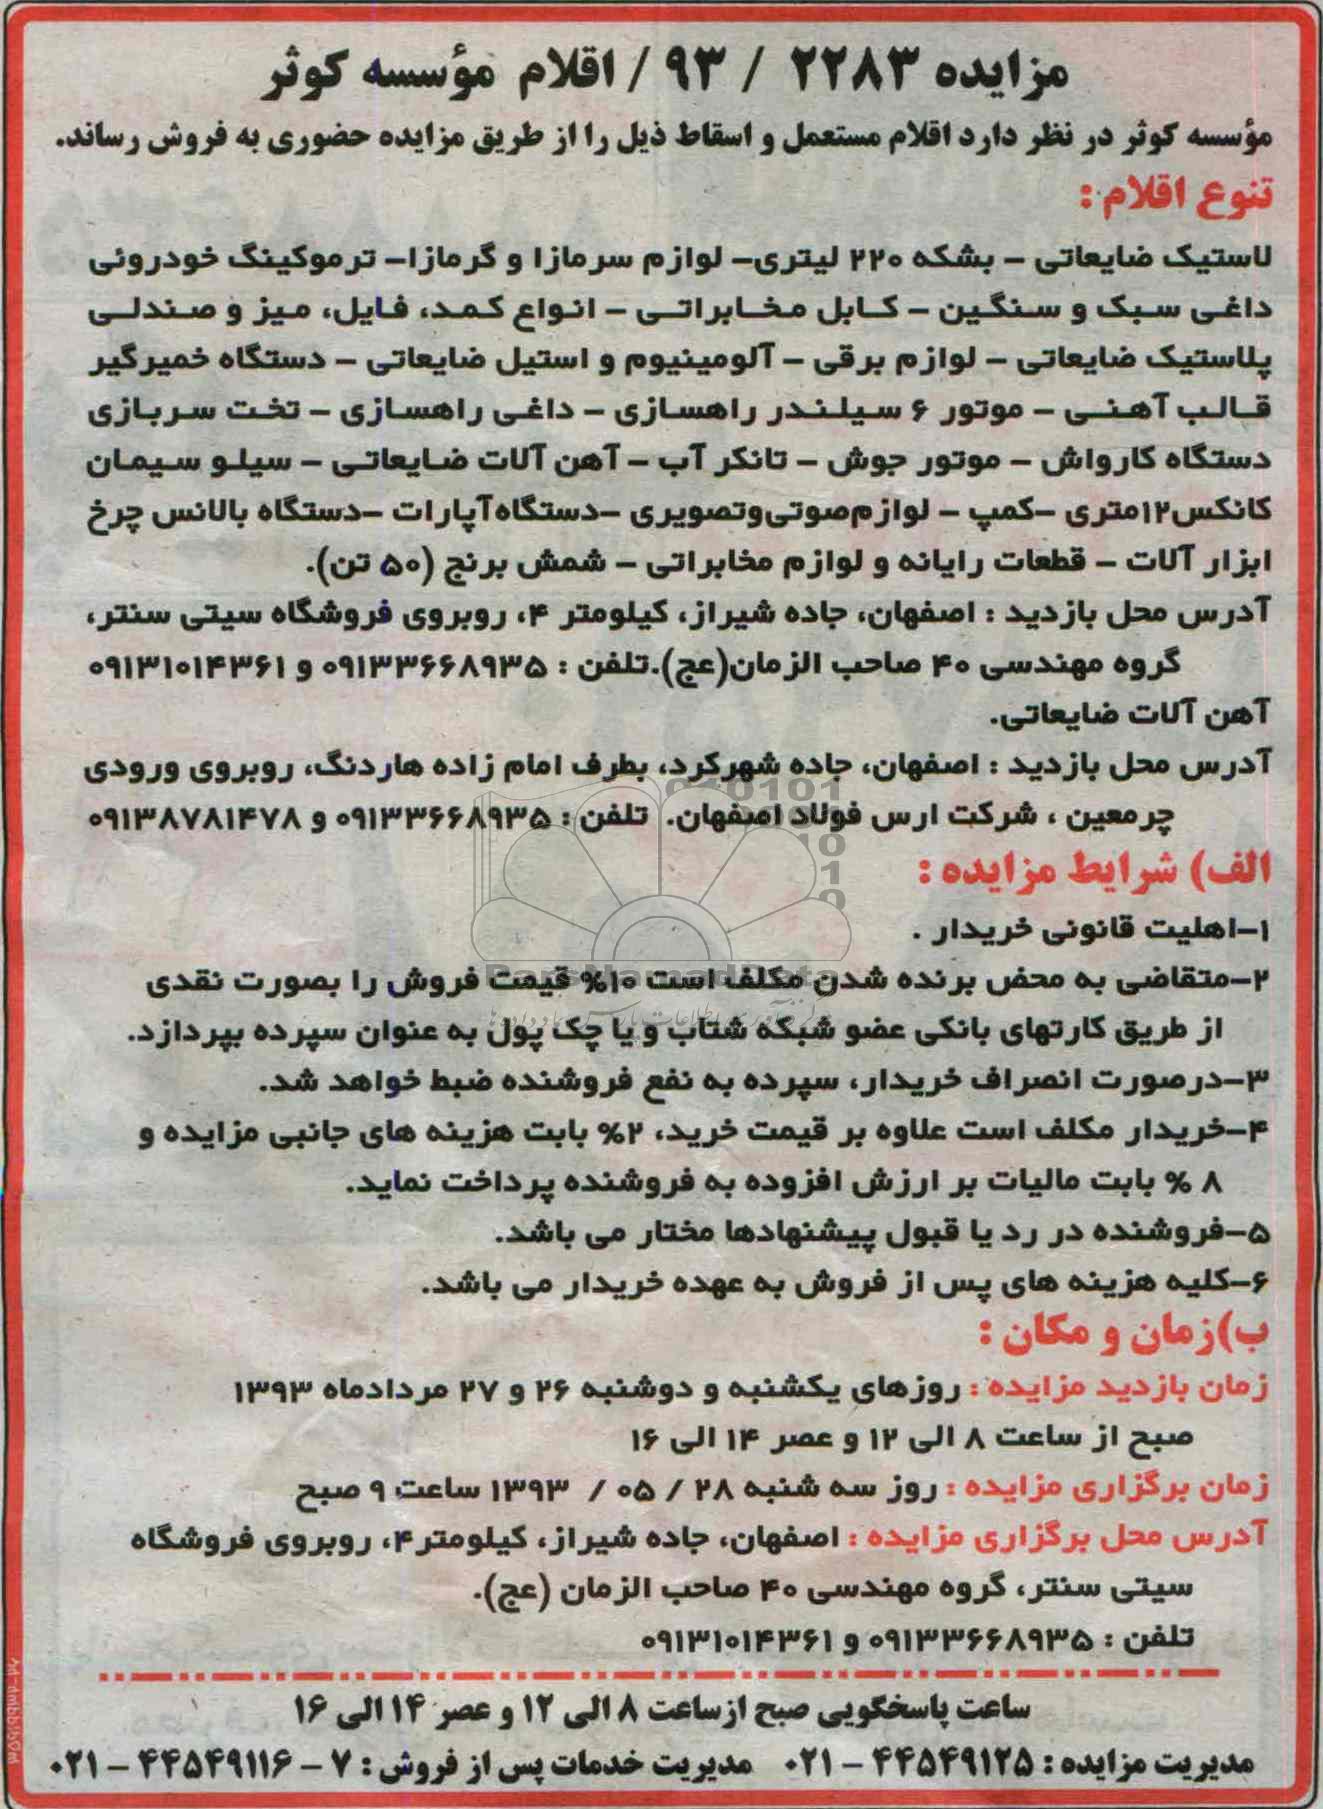 مزایده ۲۲۸۳ / ۹۳ / اقلام مؤسسه کوثر
مؤسسه کوثر در نظر دارد اقلام مستعمل و اسقاط ذیل را از طریق مزایده حضوری به فروش رساند.
تنوع اقلام :
لاستیک ضایعاتی – بشکه ۲۲۰ لیتری– لوازم سرمازا و گرمازا– ترموکینگ خودروئی
داغی سبک و سنگین – کابل مخابراتی – انواع کمد، فایل، میز و صندلی
پلاستیک ضایعاتی – لوازم برقی – آلومینیوم و استیل ضایعاتی – دستگاه خمیرگیر
قالب آهنی – موتور ۶ سیلندر راهسازی – داغی راهسازی – تخت سربازی
دستگاه کارواش – موتور جوش – تانکر آب – آهن آلات ضایعاتی – سیلو سیمان
کانکس۱۲متری –کمپ – لوازم‌صوتی‌وتصویری –دستگاه‌آپارات –دستگاه بالانس چرخ
ابزار آلات – قطعات رایانه و لوازم مخابراتی – شمش برنج (۵۰ تن).
آدرس محل بازدید : اصفهان، جاده شیراز، کیلومتر ۴، روبروی فروشگاه سیتی سنتر،
گروه مهندسی ۴۰ صاحب الزمان(عج).تلفن : ۰۹۱۳۳۶۶۸۹۳۵ و ۰۹۱۳۱۰۱۴۳۶۱
آهن آلات ضایعاتی.
آدرس محل بازدید : اصفهان، جاده شهرکرد، بطرف امام زاده هاردنگ، روبروی ورودی
چرمعین ، شرکت ارس فولاد اصفهان. تلفن : ۰۹۱۳۳۶۶۸۹۳۵ و ۰۹۱۳۸۷۸۱۴۷۸
الف) شرایط مزایده :
۱–اهلیت قانونی خریدار .
۲–متقاضی به محض برنده شدن مکلف است ۱۰% قیمت فروش را بصورت نقدی
از طریق کارتهای بانکی عضو شبکه شتاب و یا چک پول به عنوان سپرده بپردازد.
۳–درصورت انصراف خریدار، سپرده به نفع فروشنده ضبط خواهد شد.
۴–خریدار مکلف است علاوه بر قیمت خرید، ۲% بابت هزینه های جانبی مزایده و
۸ % بابت مالیات بر ارزش افزوده به فروشنده پرداخت نماید.
۵–فروشنده در رد یا قبول پیشنهادها مختار می باشد.
۶–کلیه هزینه های پس از فروش به عهده خریدار می باشد.
ب)زمان و مکان :
زمان بازدید مزایده : روزهای یکشنبه و دوشنبه ۲۶ و ۲۷ مردادماه ۱۳۹۳
صبح از ساعت ۸ الی ۱۲ و عصر ۱۴ الی ۱۶
زمان برگزاری مزایده : روز سه شنبه ۲۸ / ۰۵ / ۱۳۹۳ ساعت ۹ صبح
آدرس محل برگزاری مزایده : اصفهان، جاده شیراز، کیلومتر۴، روبروی فروشگاه
سیتی سنتر، گروه مهندسی ۴۰ صاحب الزمان (عج).
تلفن : ۰۹۱۳۳۶۶۸۹۳۵ و ۰۹۱۳۱۰۱۴۳۶۱
ساعت پاسخگویی صبح ازساعت ۸ الی ۱۲ و عصر ۱۴ الی ۱۶
مدیریت مزایده : ۴۴۵۴۹۱۲۵ – ۰۲۱ مدیریت خدمات پس از فروش : ۷ – ۴۴۵۴۹۱۱۶ – ۰۲۱